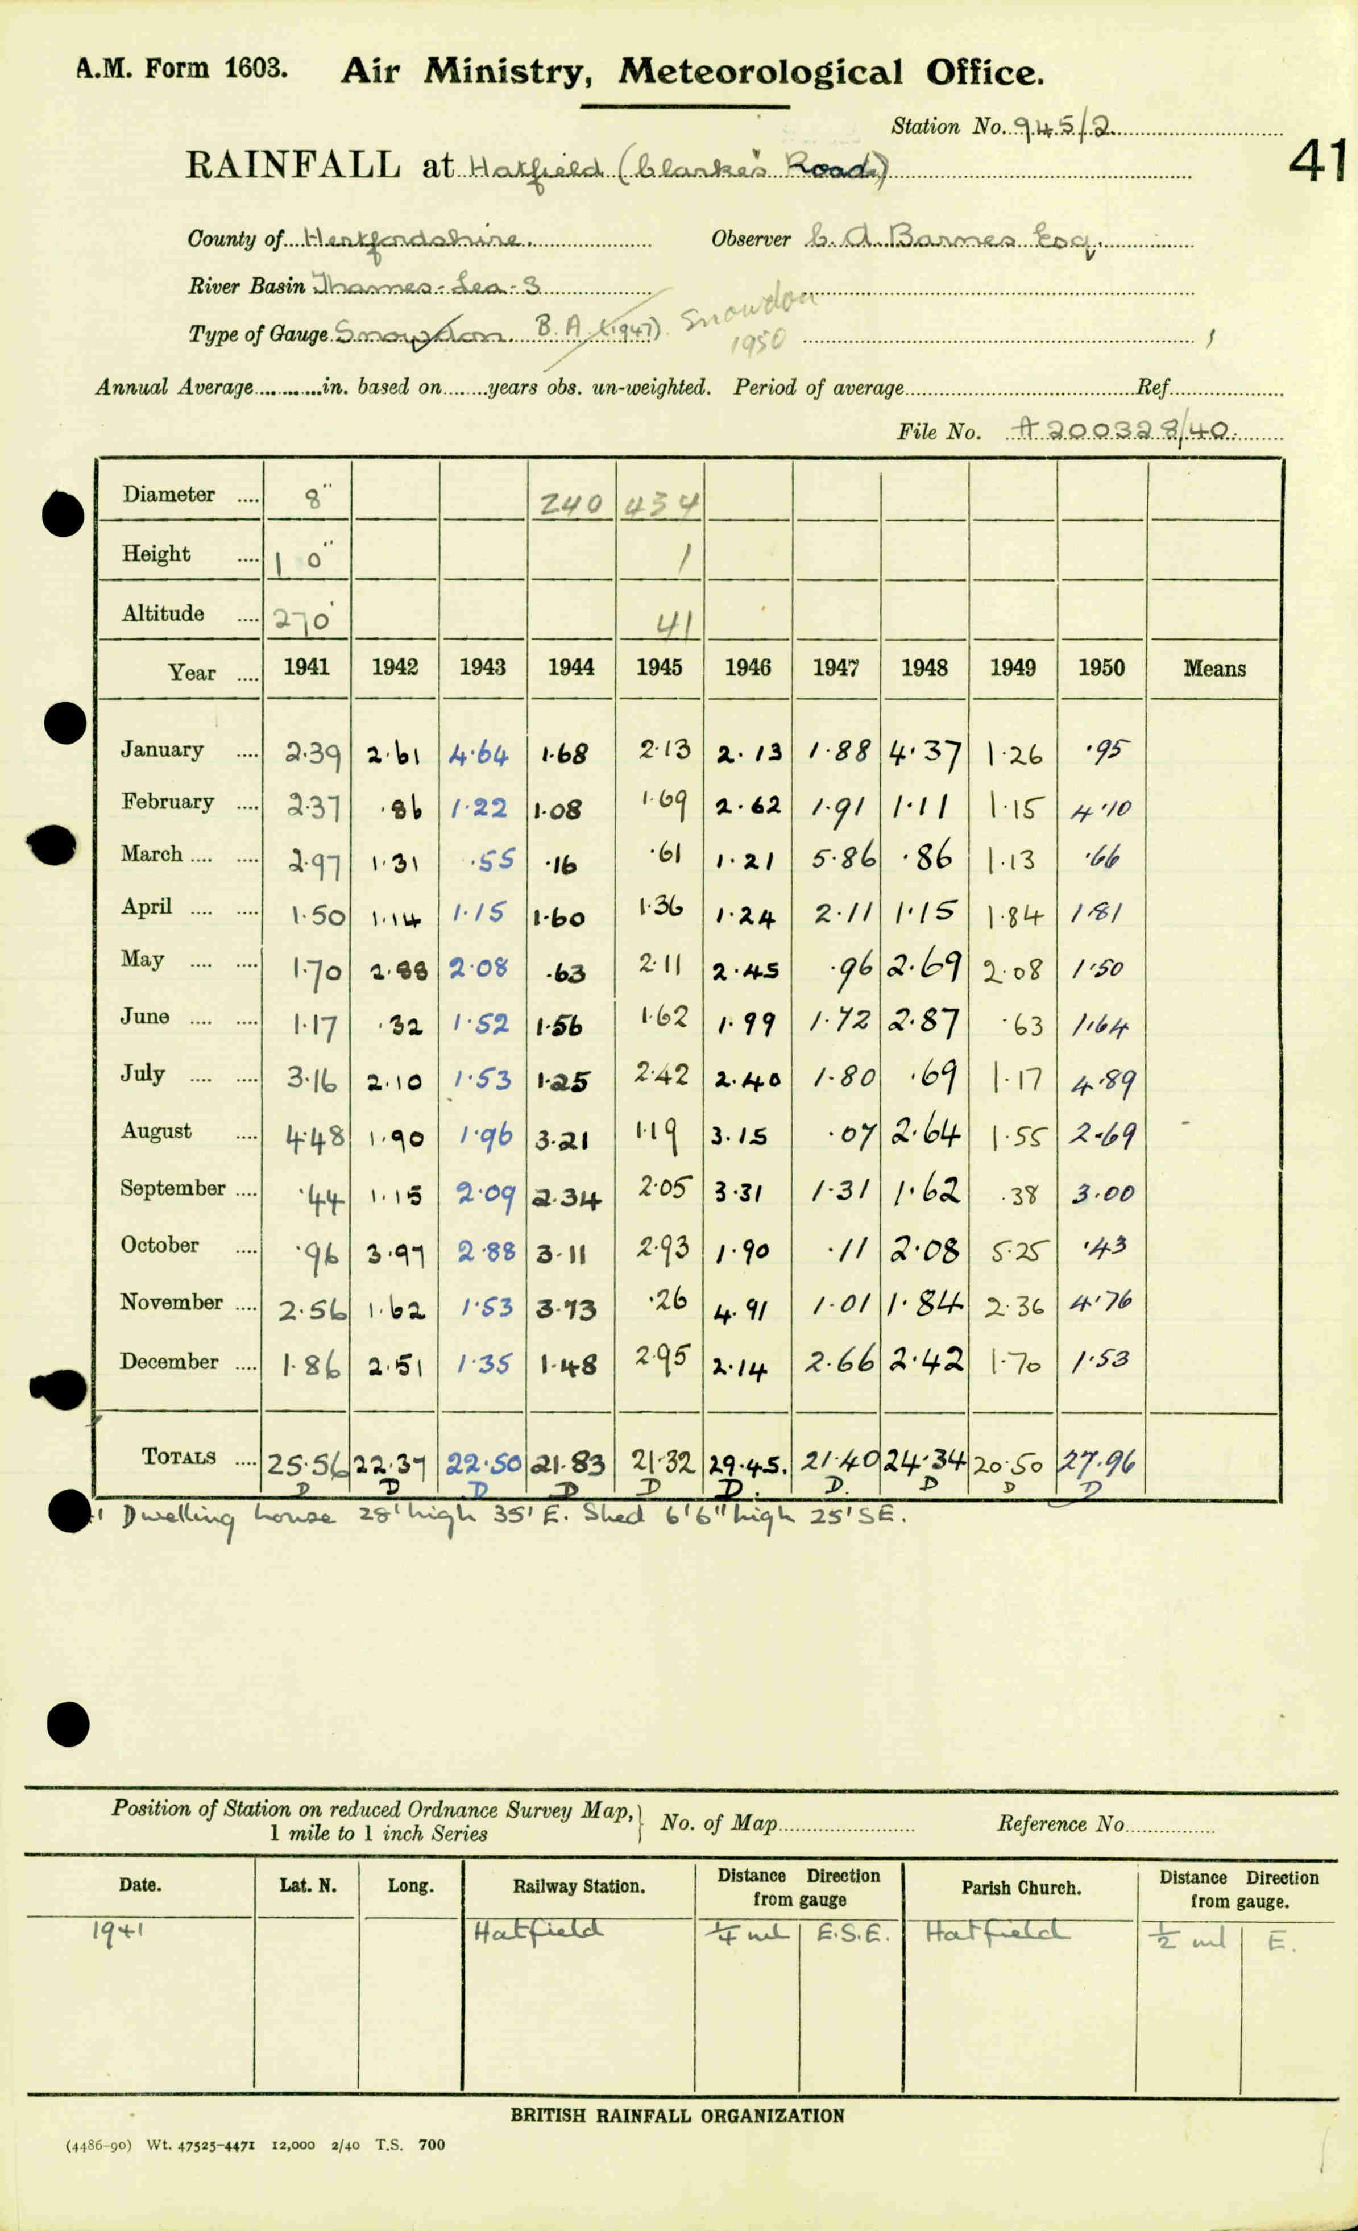 A.M. Form 1603. Air Ministry, Meteorological Office.
Station No. 945/2
41
RAINFALL at Hatfield (Clarke's Road)
County of Hertfordshire. Observer C. A. Barnes Esq.
River Basin Thames - Lea - 3
Type of Gauge Snowdon. B. A (1947). Snowdon 1950
Annual Average in. based on years obs. un-weighted. Period of average Ref
File No. A200328/40.
Diameter .... 8" 240 434
Height .... 1 0" 1
Altitude .... 270' 41
Year .... 1941 1942 1943 1944 1945 1946 1947 1948 1949 1950 Means
January .... 2.39 2.61 4.64 1.68 2.13 2.13 1.88 4.37 1.26 .95
February .... 2.37 .86 1.22 1.08 1.69 2.62 1.91 1.11 1.15 4.10
March .... .... 2.97 1.31 .55 .16 .61 1.21 5.86 .86 1.13 .66
April .... .... 1.50 1.14 1.15 1.60 1.36 1.24 2.11 1.15 1.84 1.81
May .... .... 1.70 2.88 2.08 .63 2.11 2.45 .96 2.69 2.08 1.50
June .... .... 1.17 .32 1.52 1.56 1.62 1.99 1.72 2.87 .63 1.64
July .... .... 3.16 2.10 1.53 1.25 2.42 2.40 1.80 .69 1.17 4.89
August .... 4.48 1.90 1.96 3.21 1.19 3.15 .07 2.64 1.55 2.69
September .... .44 1.15 2.09 2.34 2.05 3.31 1.31 1.62 .38 3.00
October .... .96 3.97 2.88 3.11 2.93 1.90 .11 2.08 5.25 .43
November .... 2.56 1.62 1.53 3.73 .26 4.91 1.01 1.84 2.36 4.76
December .... 1.86 2.51 1.35 1.48 2.95 2.14 2.66 2.42 1.70 1.53
TOTALS .... 25.56 22.37 22.50 21.83 21.32 29.45. 21.40 24.34 20.50 27.96
D D D D D D. D. D D D
Dwelling house 28' high 35' E. Shed 6'6" high 25' SE.
Position of Station on reduced Ordnance Survey Map, 1 mile to 1 inch Series } No. of Map Reference No
Date. Lat. N. Long. Railway Station. Distance Direction from gauge Parish Church. Distance Direction from gauge.
1941 Hatfield 1/4 ml E.S.E. Hatfield 1/2 ml E.
BRITISH RAINFALL ORGANIZATION
(4486-90) Wt. 47525-4471 12,000 2/40 T.S. 700